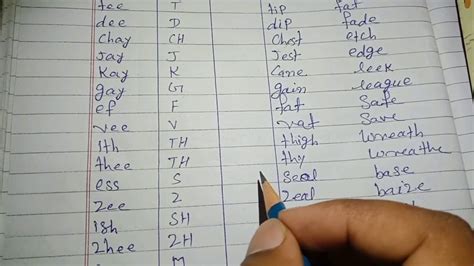 tee T tip fat
dee D dip fade
Chay CH Chest etch
Jay J Jest edge
Kay K Cane leek
gay G gain league
ef F fat Safe
vee V vat Save
ith TH thigh wreath
thee TH thy wreathe
ess S Seal base
zee Z zeal baize
ish SH
zhee ZH
M